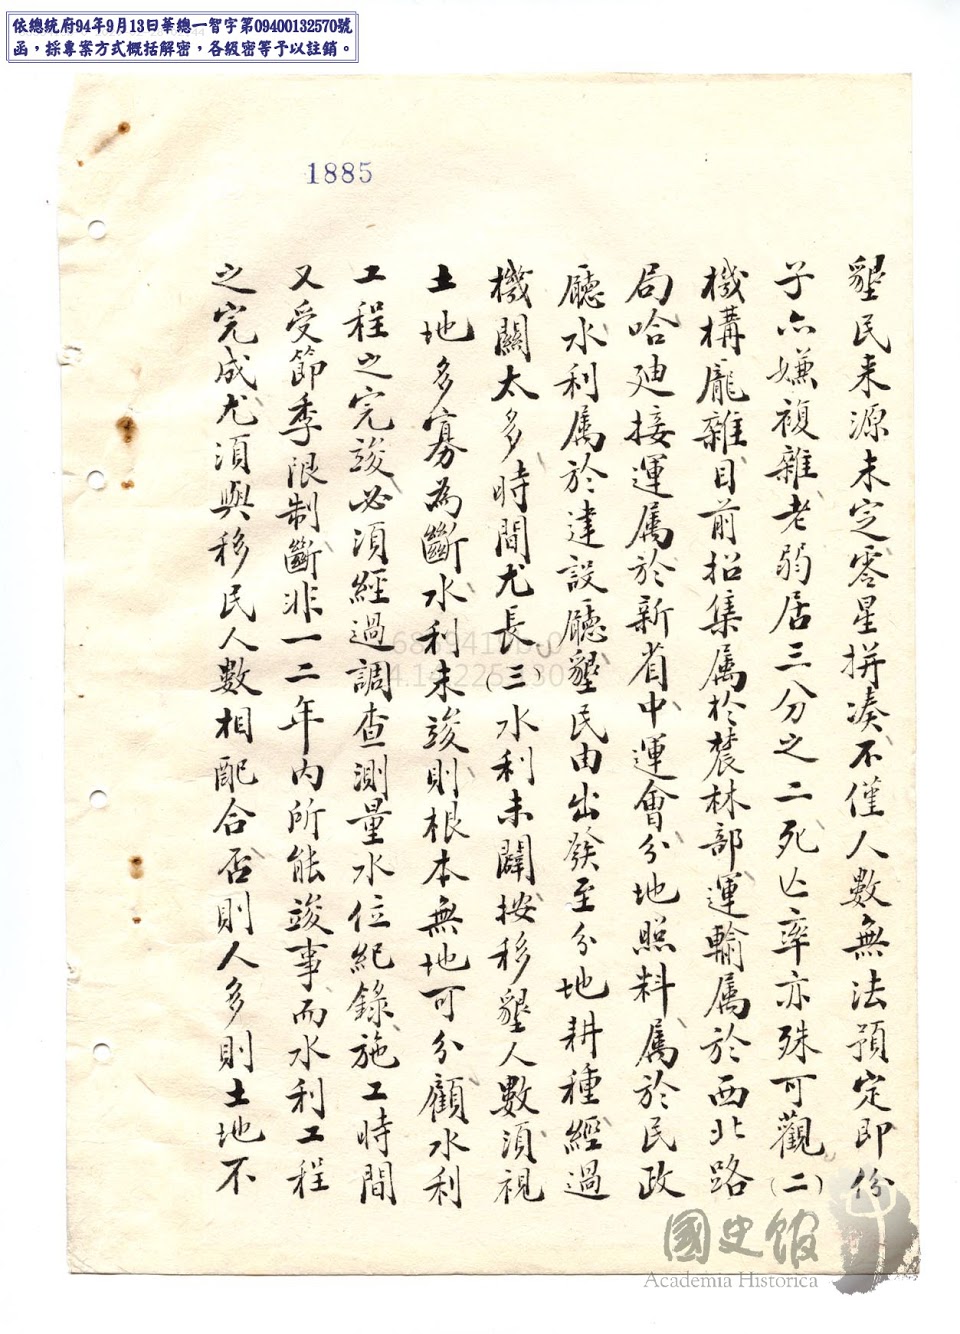 依總統府94年9月13日華總一智字第09400132570號
函，採專案方式概括解密，各級密等予以註銷。
1885
墾民来源未定零星拼湊不僅人數無法預定即份
子亦嫌複雜老弱居三分之二死亡率亦殊可觀(二)
機構龐雜目前招集属於農林部運輸属於西北路
局哈迪接運属於新省中運會分地照料属於民政
廳水利属於建設廳墾民由出發至分地耕種經過
機關太多時間尤長(三)水利未闢按移墾人數須視
土地多寡為斷水利未竣則根本無地可分顧水利
工程之完竣必須經過調查測量水位紀錄施工時間
又受節季限制斷非一二年內所能竣事而水利工程
之完成尤須與移民人數相配合否則人多則土地不
國史館
Academia Historica